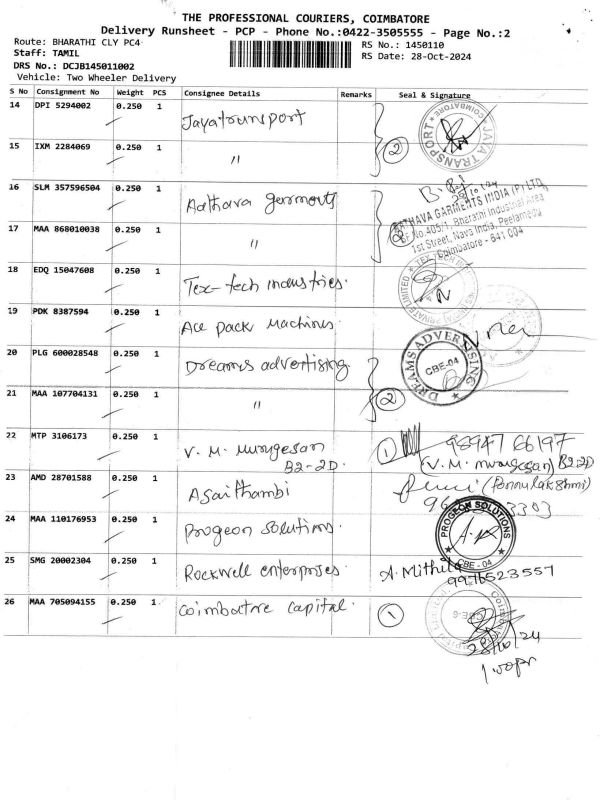 THE PROFESSIONAL COURIERS, COIMBATORE
Delivery Runsheet - PCP - Phone No.:0422-3505555 - Page No.:2
Route: BHARATHI CLY PC4
RS No.: 1450110
Staff: TAMIL
RS Date: 28-Oct-2024
DRS No.: DCJB145011002
Vehicle: Two Wheeler Delivery
S No Consignment No Weight PCS Consignee Details Remarks Seal & Signature
14 DPI 5294002 0.250 1 Jayatransport
COIMBATORE JAYA TRANSPORT
15 IXM 2284069 0.250 1 "
2
16 SLM 357596504 0.250 1 Aathava garments
28/10/24
AATHAVA GARMENTS INDIA (P) LTD
SF No.405/1, Bharathi Industrial Area
1st Street, Nava India, Peelamedu
Coimbatore - 641 004
17 MAA 868010038 0.250 1 "
2
18 EDQ 15047608 0.250 1 Tex-tech industries.
PRIVATE LIMITED
19 PDK 8387594 0.250 1 Ace pack machines.
20 PLG 600028548 0.250 1 Dreams advertising.
DREAMS ADVERTISING
CBE-04
21 MAA 107704131 0.250 1 "
2
22 MTP 3106173 0.250 1 V. M. Murugesan
B2-2D.
1
98947 66197
(V. M. Murugesan) B2-2D
23 AMD 28701588 0.250 1 Asaithambi
(Ponnulakshmi)
3303
24 MAA 110176953 0.250 1 Progeon solutions.
PROGEON SOLUTIONS
CBE - 04
25 SMG 20002304 0.250 1 Rockwell enterprises.
A. Mithila
9976523557
26 MAA 705094155 0.250 1 Coimbatore capital.
1
28/10/24